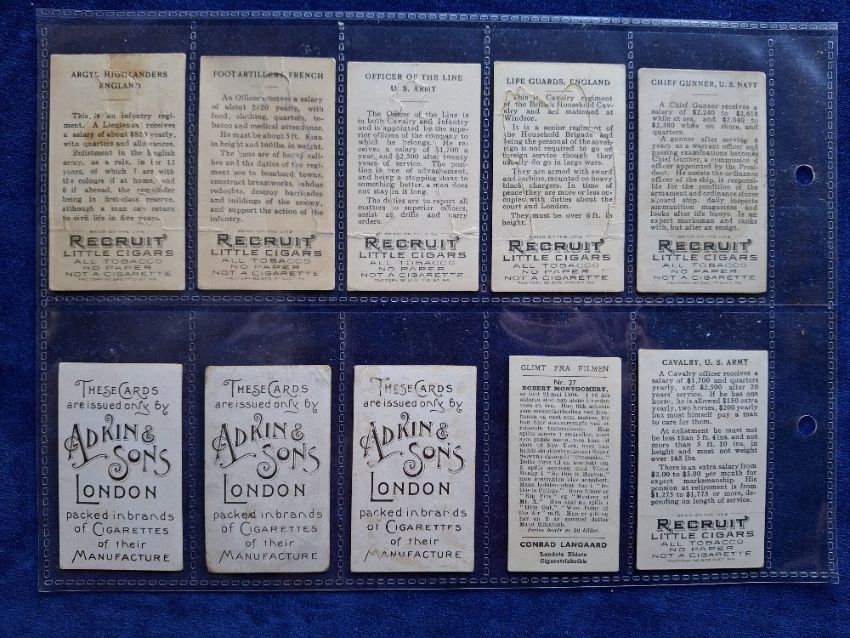 ARGYL HIGHLANDERS
ENGLAND
This is an infantry regi-
ment. A Lieutenant receives
a salary of about $820 yearly,
with quarters and allowances.
Enlistment in the English
army, as a rule, is for 12
years, of which 7 are with
the colours if at home, and
8 if abroad, the remainder
being in first-class reserve,
although a man can return
to civil life in five years.
BEND ON THE LINE
RECRUIT
LITTLE CIGARS
ALL TOBACCO
NO PAPER
NOT A CIGARETTE
FOOT ARTILLERY, FRENCH
An Officer receives a salary
of about $520 yearly, with
food, clothing, quarters, to-
bacco and medical attendance.
He must be about 5 ft. 8 ins.
in height and 160 lbs. in weight.
The guns are of heavy cali-
bre and the duties of the reg-
iment are to bombard towns,
construct breastworks, subdue
redoubts, destroy barricades
and buildings of the enemy,
and support the action of the
infantry.
BEND ON THE LINE
RECRUIT
LITTLE CIGARS
ALL TOBACCO
NO PAPER
NOT A CIGARETTE
OFFICER OF THE LINE
U. S. ARMY
The Officer of the Line is
in both Cavalry and Infantry
and is appointed by the supe-
rior officers of the company to
which he belongs. He re-
ceives a salary of $1,700 a
year, and $2,500 after twenty
years of service. The posi-
tion is one of advancement,
and being a stepping stone to
something better, a man does
not stay in it long.
The duties are to report all
matters to superior officers,
assist at drills and carry
orders.
BEND ON THE LINE
RECRUIT
LITTLE CIGARS
ALL TOBACCO
NO PAPER
NOT A CIGARETTE
LIFE GUARDS, ENGLAND
This is Cavalry regiment
of the British Household Cav-
alry and are stationed at
Windsor.
It is a senior regiment of
the Household Brigade and
being the personal of the sover-
eign is not required to go on
foreign service though they
usually do go in large wars.
They are armed with sword
and carbine, mounted on heavy
black chargers. In time of
peace they are more or less oc-
cupied with duties about the
court and London.
They must be over 6 ft. in
height.
BEND ON THE LINE
RECRUIT
LITTLE CIGARS
ALL TOBACCO
NO PAPER
NOT A CIGARETTE
CHIEF GUNNER, U.S. NAVY
A Chief Gunner receives a
salary of $2,240 to $2,618
while at sea, and $2,040 to
$2,389 while on shore, and
quarters.
A gunner after serving 6
years as a warrant officer and
passing examinations becomes
Chief Gunner, a commission of-
officer appointed by the Presi-
dent. He assists the ordinance
officer of the ship, is responsi-
ble for the condition of the
armament and ordnance stores
aboard ship, daily inspects
ammunition magazines and
looks after life buoys. Is an
expert marksman and ranks
with, but after an ensign.
BEND ON THE LINE
RECRUIT
LITTLE CIGARS
ALL TOBACCO
NO PAPER
NOT A CIGARETTE
THESE CARDS
are issued only by
ADKIN &
SONS
LONDON
packed in brands
of CIGARETTES
of their
MANUFACTURE
THESE CARDS
are issued only by
ADKIN &
SONS
LONDON
packed in brands
of CIGARETTES
of their
MANUFACTURE
THESE CARDS
are issued only by
ADKIN &
SONS
LONDON
packed in brands
of CIGARETTES
of their
MANUFACTURE
GLIMT FRA FILMEN
Nr. 27
ROBERT MONTGOMERY,
CONRAD LANGAARD
Landets Eldste
Cigarettfabrikk
CAVALRY, U.S. ARMY
A Cavalry officer receives a
salary of $1,700 and quarters
yearly, and $2,500 after 20
years' service. If he has one
horse, he is allowed $150 extra
yearly, two horses, $200 yearly
but must himself pay a man
to care for them.
At enlistment he must not
be less than 5 ft. 4 ins. and not
more than 5 ft. 10 ins. in
height and must not weight
over 165 lbs.
There is an extra salary from
$2.00 to $5.00 per month for
expert marksmanship. His
pension at retirement is from
$1,275 to $1,775 or more, de-
pending on length of service.
BEND ON THE LINE
RECRUIT
LITTLE CIGARS
ALL TOBACCO
NO PAPER
NOT A CIGARETTE